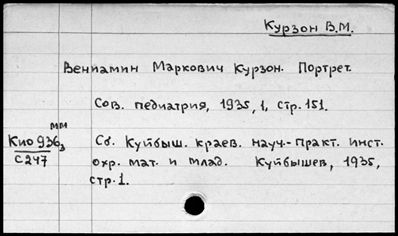 Курзон В.М.
Вениамин Маркович Курзон. Портрет.
Сов. педиатрия, 1935, 1, стр. 151.
мм
Кио 936з
С247
Сб. Куйбыш. краев. науч.-практ. инст.
охр. мат. и млад. Куйбышев, 1935,
стр. 1.